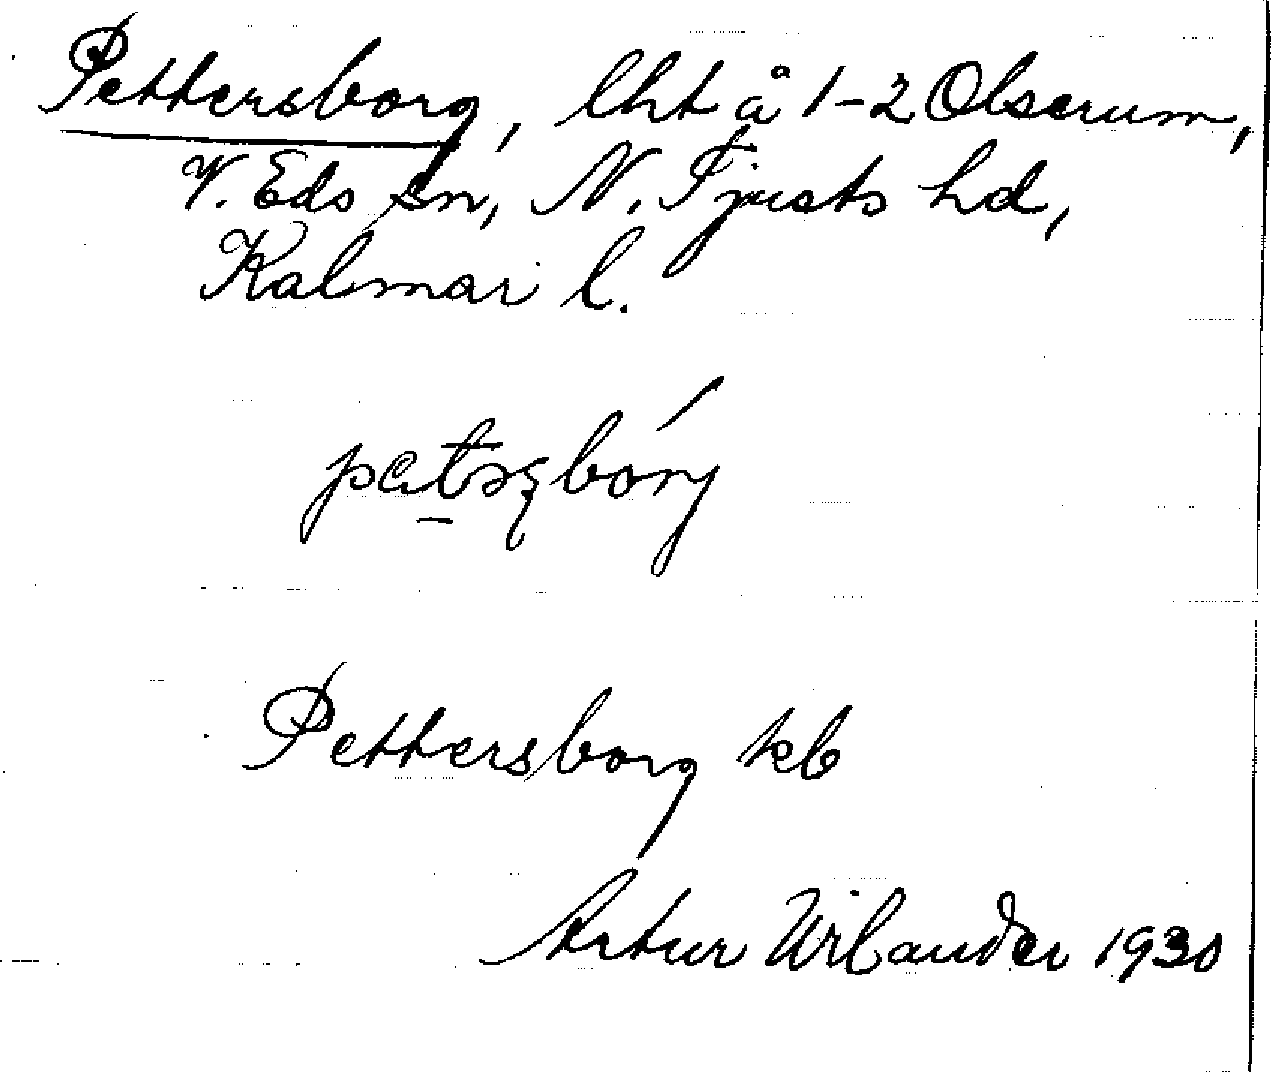 Pettersborg, lht å 1-2 Olserum,
V. Eds sn, N. Tjusts hd,
Kalmar l.
Pettersborg kb
Artur Wilander 1930